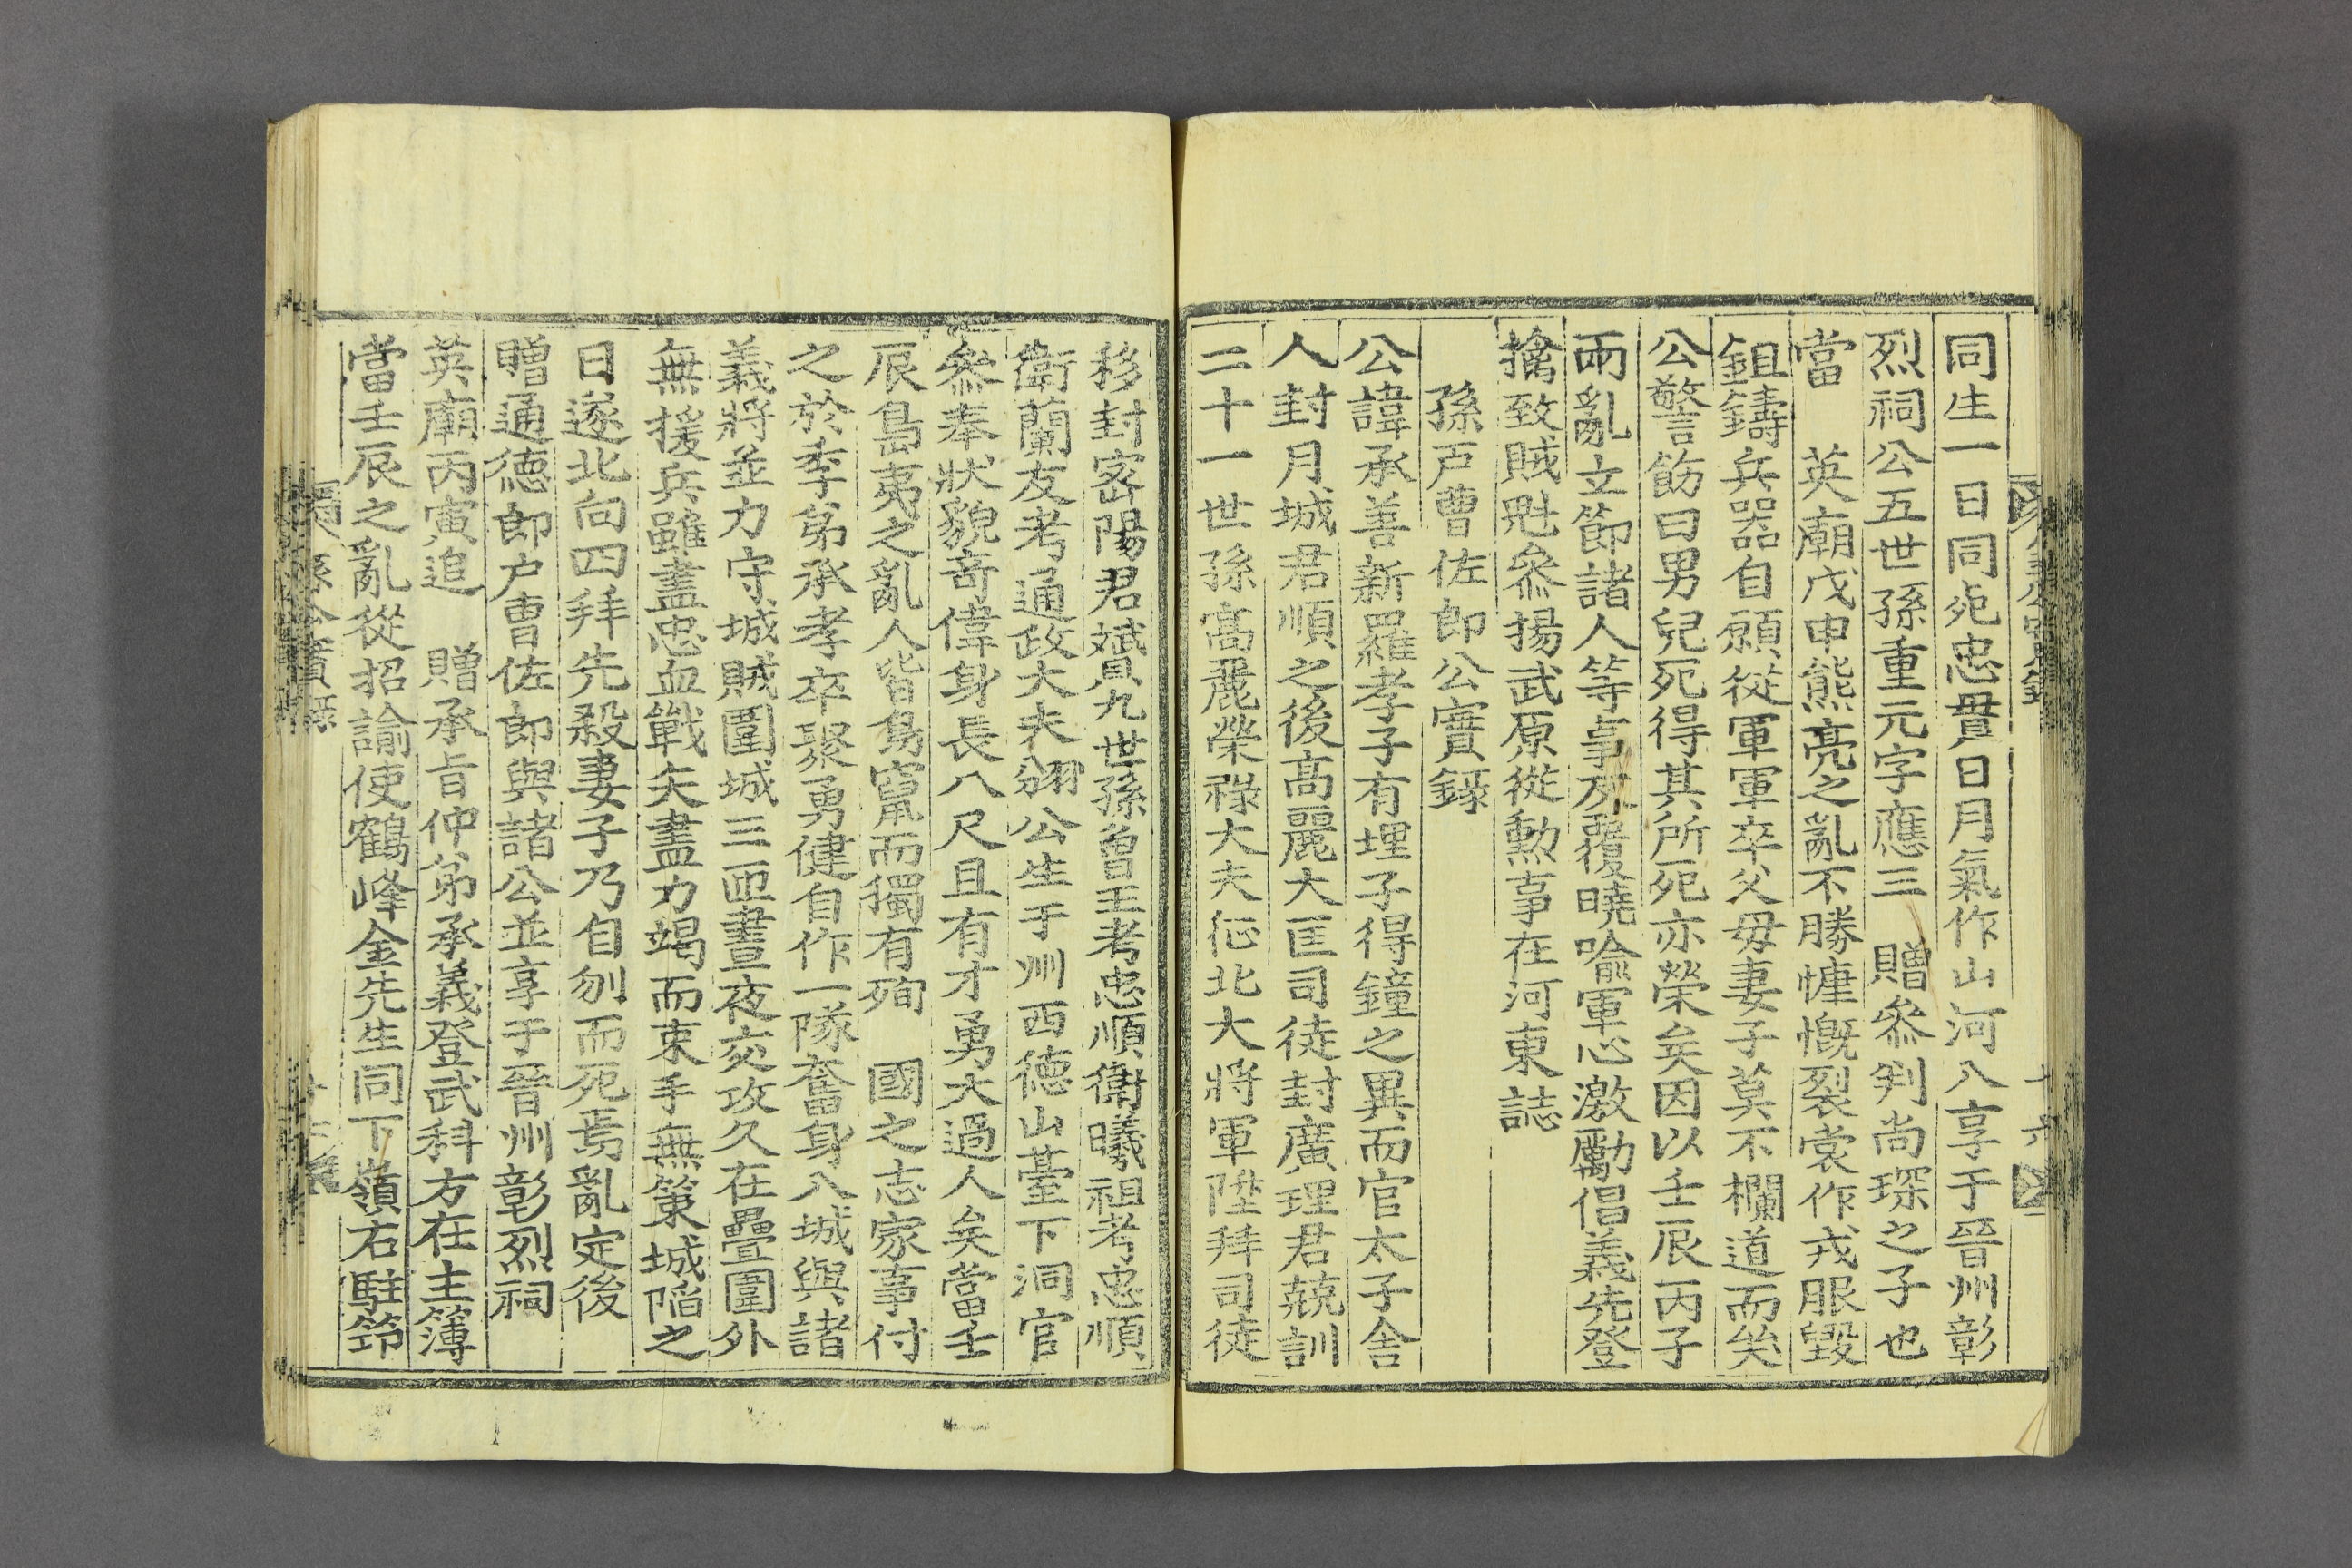 同生一日同死忠貫日月氣作山河八享于晉州彰
烈祠公五世孫重元字應三 贈參判尚琛之子也
當 英廟戊申熊亮之亂不勝慷慨裂裳作戎服毀
鉏鑄兵器自願從軍軍卒父母妻子莫不欄道而矣
公警飭曰男兒死得其所死亦榮矣因以壬辰丙子
兩亂立節諸人等事反覆曉喻軍心激勵倡義先登
擒致賊魁參揚武原從勳事在河東誌
孫戶曹佐郎公實錄
公諱承善新羅孝子有埋子得鐘之異而官太子舍
人封月城君順之後高麗大匡司徒封廣理君兢訓
二十一世孫高麗榮祿大夫征北大將軍陞拜司徒
移封密陽君贇九世孫曾王考忠順衛曦祖考忠順
衛蘭友考通政大夫翎公生于州西德山臺下洞官
參奉狀貌奇偉身長八尺且有才勇大過人矣當壬
辰島夷之亂人皆鳥竄而獨有殉 國之志家事付
之於季弟承孝卒聚勇健自作一隊奮身入城與諸
義將並力守城賊圍城三匝晝夜交攻久在疊圍外
無援兵雖盡忠血戰矢盡力竭而束手無策城陷之
日遂北向四拜先殺妻子乃自刎而死焉亂定後
贈通德郎戶曹佐郎與諸公並享于晉州彰烈祠
英廟丙寅追 贈承旨仲弟承義登武科方在主簿
當壬辰之亂從招諭使鶴峰金先生同下嶺右駐節